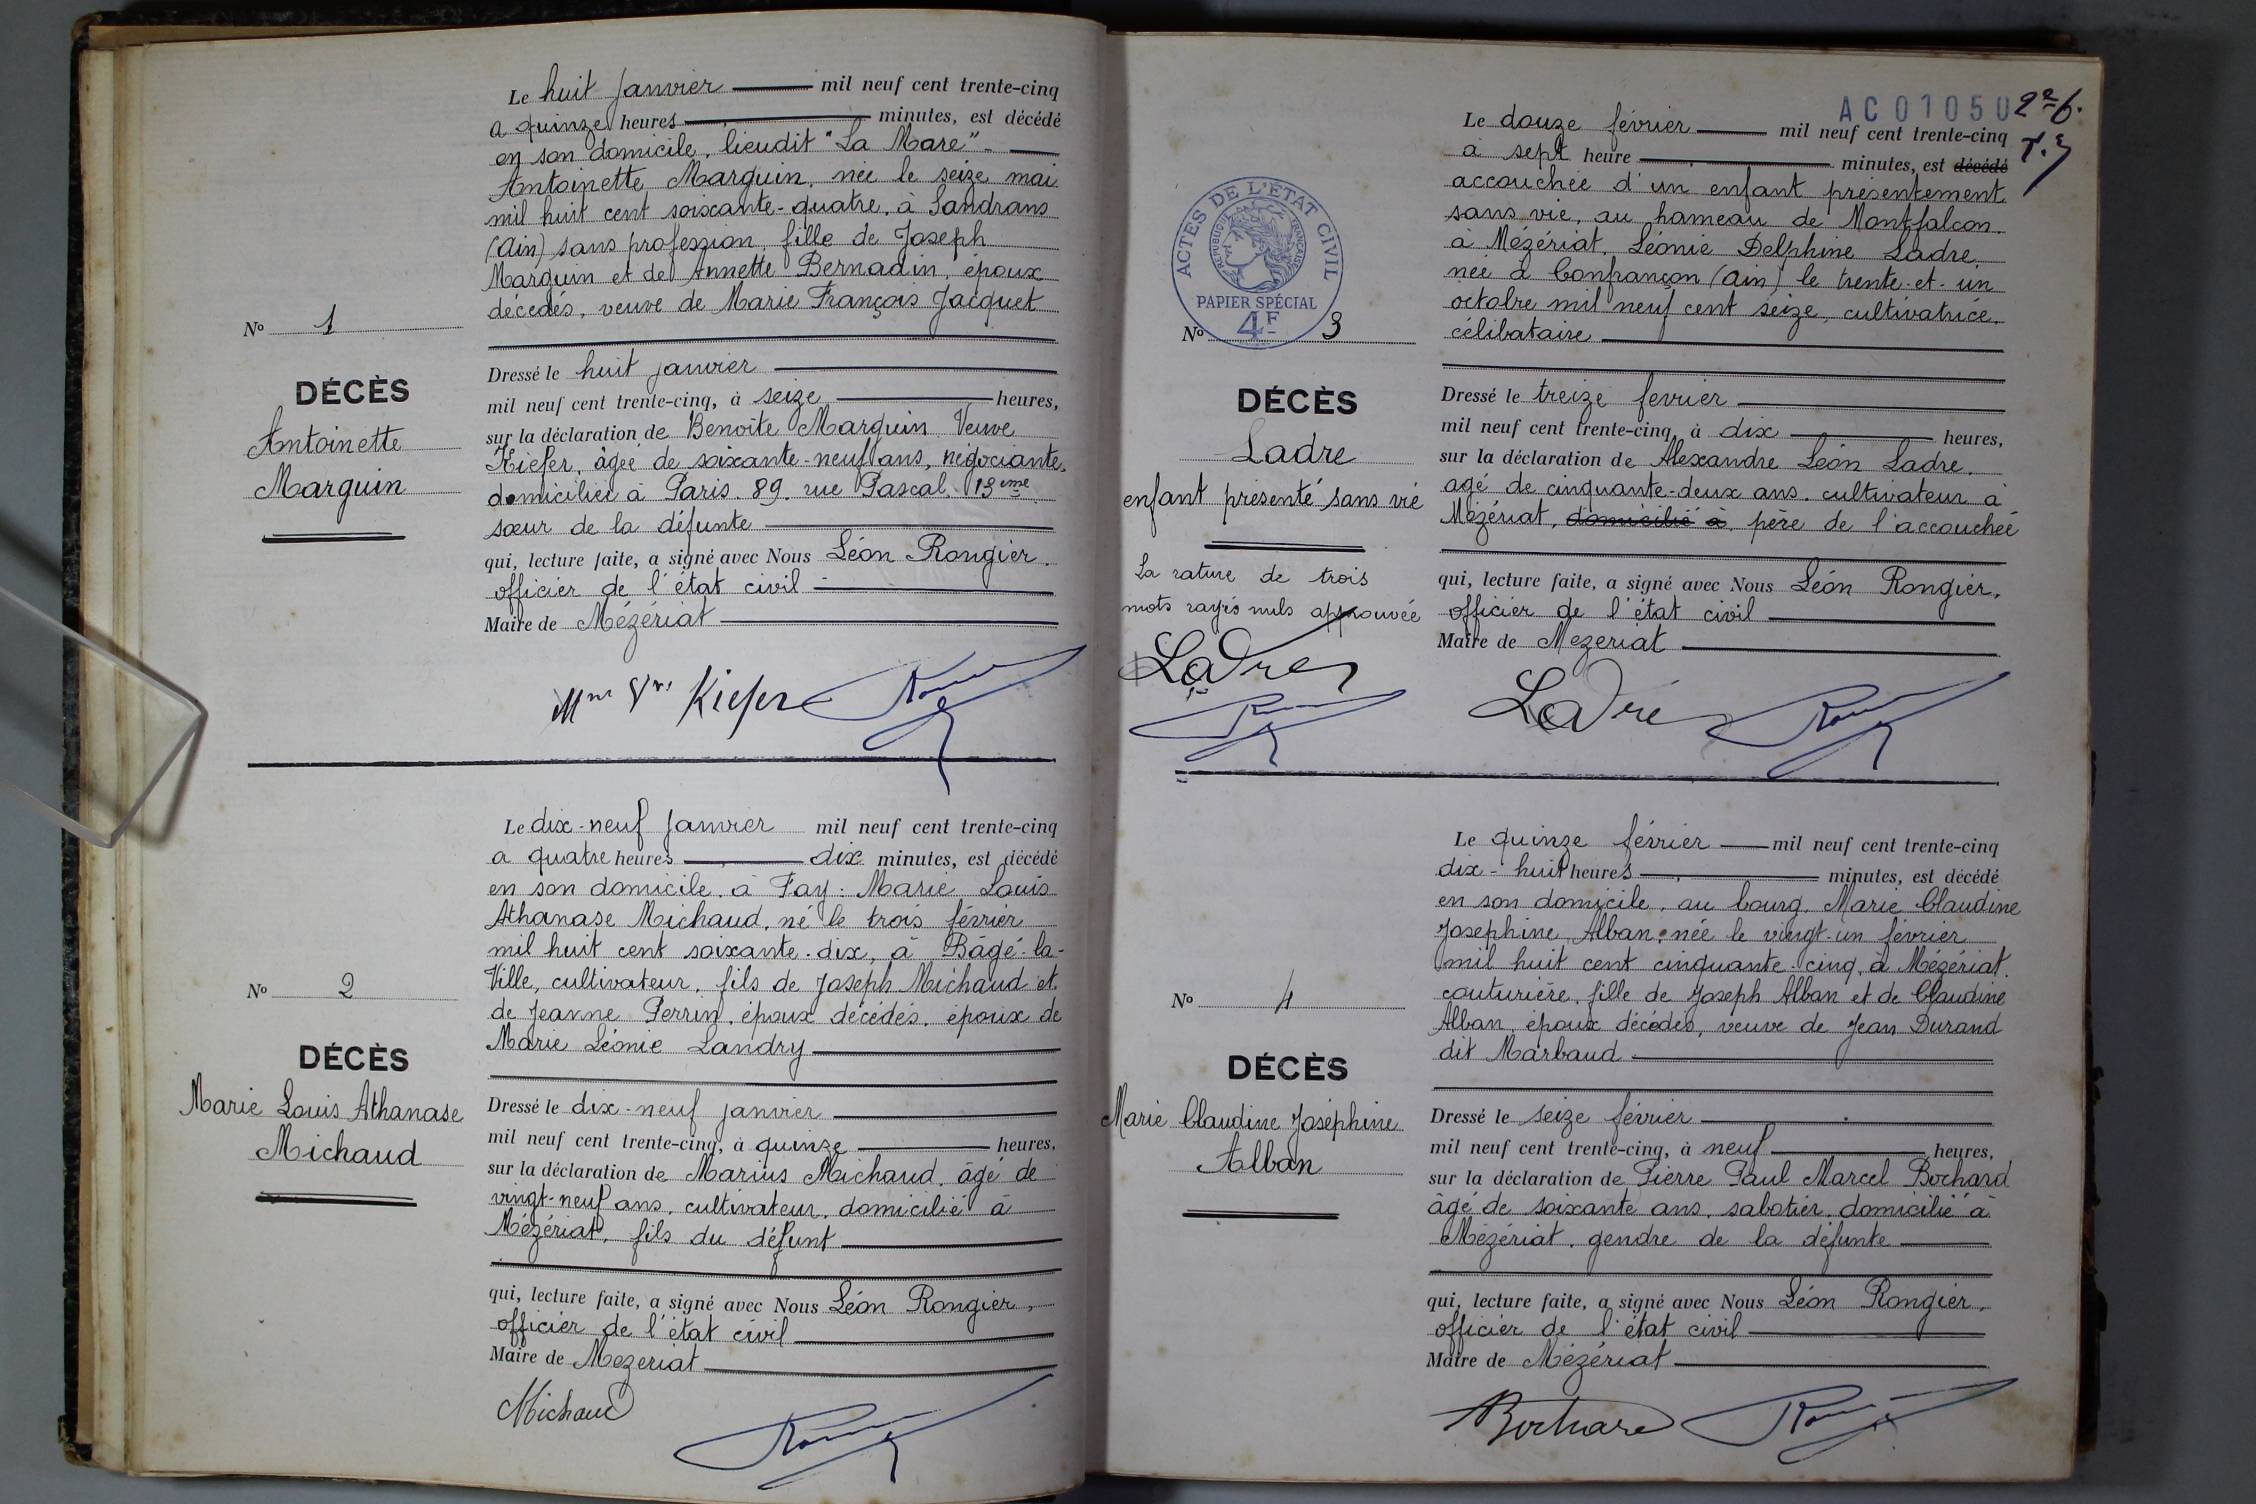 Le huit janvier mil neuf cent trente-cinq
a quinze heures minutes, est décédé
en son domicile, lieudit "La Mare" -
Antoinette Marguin, née le seize mai
mil huit cent soixante-quatre, à Sandrans
(Ain) sans profession, fille de Joseph
Marguin et de Annette Bernadin, époux
décédés, veuve de Marie François Jacquet
N° 1
DÉCÈS
Antoinette
Marguin
Dressé le huit janvier
mil neuf cent trente-cinq, à seize heures,
sur la déclaration de Benoite Marguin Veuve
Kiefer, âgée de soixante-neuf ans, négociante,
domiciliée à Paris. 89. rue Pascal. 13eme
sœur de la défunte
qui, lecture faite, a signé avec Nous Léon Rongier.
officier de l'état civil -
Maire de Mézériat
Mme Vve Kiefer
Le dix-neuf janvier mil neuf cent trente-cinq
a quatre heures dix minutes, est décédé
en son domicile, à Fay: Marie Louis
Athanase Michaud, né le trois février
mil huit cent soixante-dix, à Bâgé-la-
Ville, cultivateur, fils de Joseph Michaud et
de Jeanne Perrin, époux décédés, époux de
Marie Léonie Landry
N° 2
DÉCÈS
Marie Louis Athanase
Michaud
Dressé le dix-neuf janvier
mil neuf cent trente-cinq, à quinze heures,
sur la déclaration de Marius Michaud, âgé de
vingt-neuf ans, cultivateur, domicilié à
Mézériat, fils du défunt
qui, lecture faite, a signé avec Nous Léon Rongier,
officier de l'état civil
Maire de Mezeriat
Michaud
AC01050
22 6.
Le douze février mil neuf cent trente-cinq
a sept heure minutes, est décédé
accouchée d'un enfant présentement
sans vie, au hameau de Montfalcon.
à Mézériat, Léonie Delphine Ladre,
née à Confrançon (Ain) le trente-et-un
octobre mil neuf cent seize, cultivatrice,
célibataire
ACTES DE L'ÉTAT CIVIL
RÉPUBLIQUE FRANÇAISE
PAPIER SPÉCIAL
4F
N° 3
DÉCÈS
Ladre
enfant présenté sans vie
La rature de trois
mots rayés nuls approuvée
Ladre
Dressé le treize fevrier
mil neuf cent trente-cinq, à dix heures,
sur la déclaration de Alexandre Léon Ladre,
agé de cinquante-deux ans, cultivateur à
Mézériat, domicilié à, père de l'accouchée
qui, lecture faite, a signé avec Nous Léon Rongier,
officier de l'état civil
Maire de Mezeriat
Ladre
Le quinze février mil neuf cent trente-cinq
dix-huit heures minutes, est décédé
en son domicile, au bourg, Marie Claudine
Joséphine Alban, née le vingt-un février
mil huit cent cinquante-cinq, à Mézériat.
couturière, fille de Joseph Alban et de Claudine
Alban, époux décédés, veuve de Jean Durand
dit Marbaud
N° 4
DÉCÈS
Marie Claudine Joséphine
Alban
Dressé le seize février
mil neuf cent trente-cinq, à neuf heures,
sur la déclaration de Pierre Paul Marcel Bochard
âgé de soixante ans, sabotier, domicilié à
Mézériat, gendre de la défunte
qui, lecture faite, a signé avec Nous Léon Rongier,
officier de l'état civil
Maire de Mézériat
Bochard